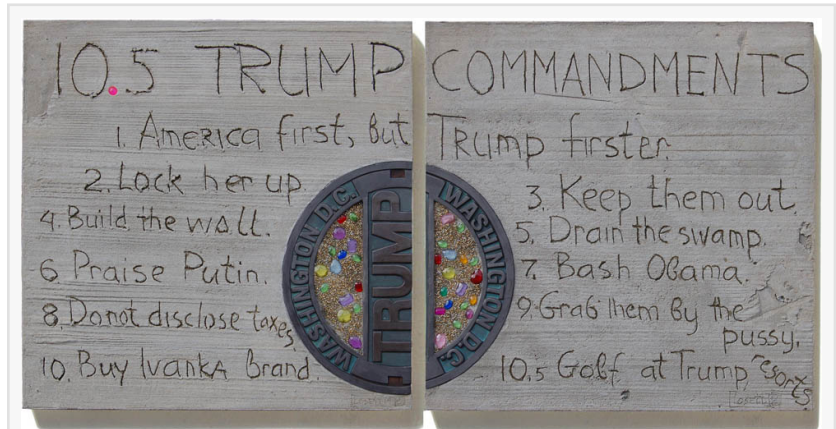 10.5 TRUMP COMMANDMENTS
1. America first, but Trump firster.
2. Lock her up.
3. Keep them out.
4. Build the wall.
5. Drain the swamp.
6. Praise Putin.
7. Bash Obama.
8. Do not disclose taxes.
9. Grab them by the
pussy.
10. Buy Ivanka brand.
10.5 Golf at Trump resorts
WASHINGTON D.C.
TRUMP
WASHINGTON D.C.
WASHINGTON
WASHINGTON D.C.